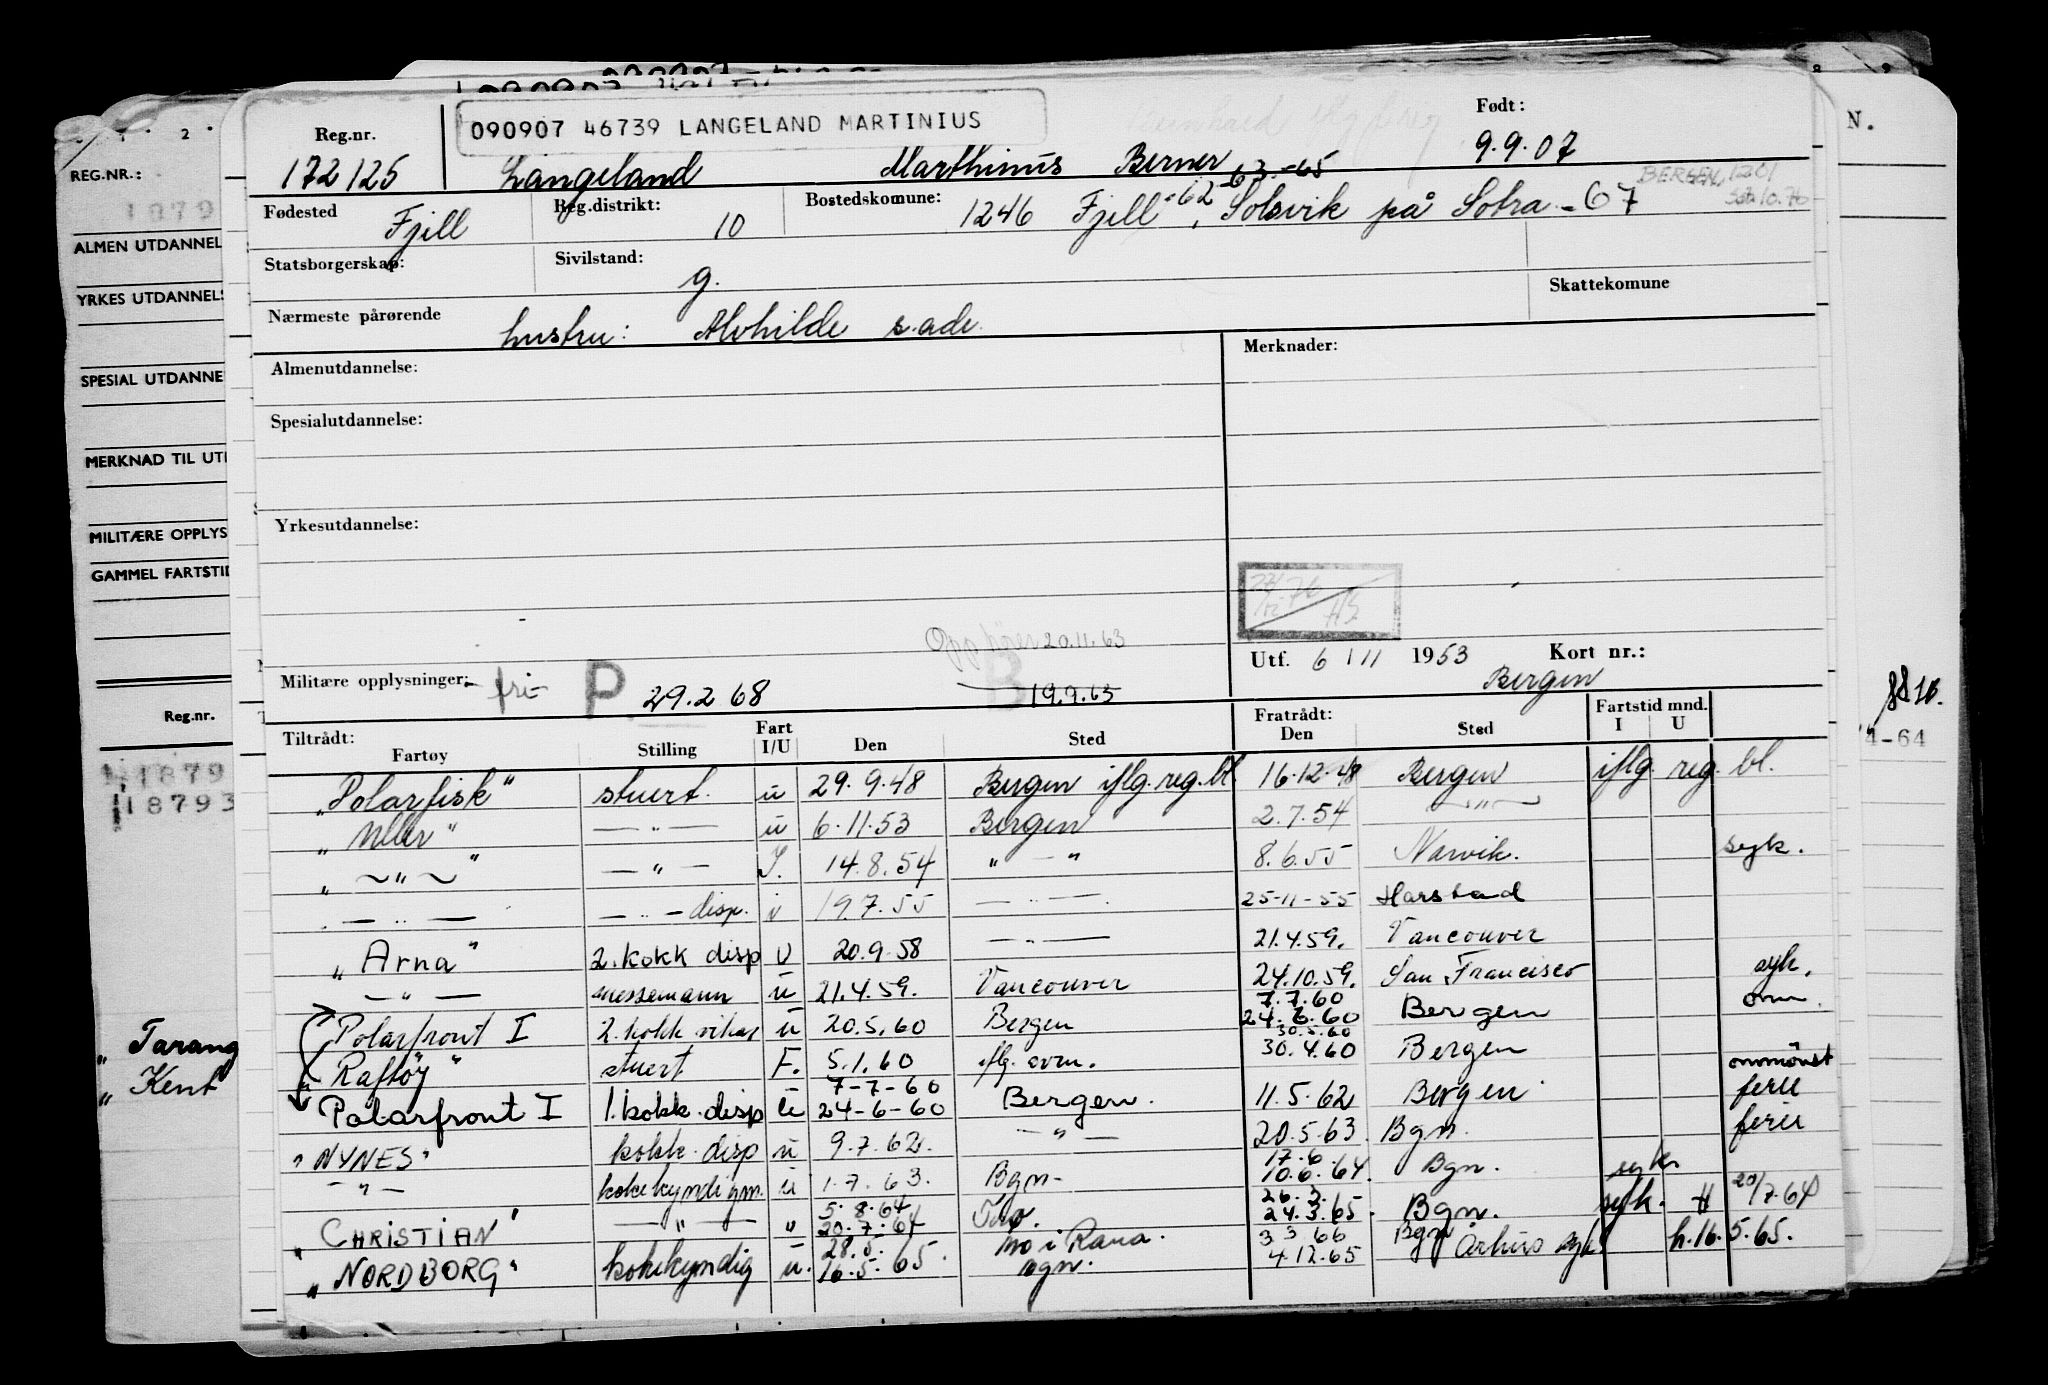 REG.NR.:
1879
ALMEN UTDANNEL
YRKES UTDANNELS
SPESIAL UTDANNE
MERKNAD TIL UT
MILITÆRE OPPLYS
GAMMEL FARTSTID
Reg.nr.
11879
118793
" Tarang
" Kent
N.
4-64
Reg.nr. 090907 46739 LANGELAND MARTINIUS Født:
172125 Langeland Marthinus Berner 9.9.07
-63-65
BERGEN, 1201
Fødested Fjill Reg.distrikt: 10 Bostedskomune: 1246 Fjill -62, Solsvik på Sotra -67
Statsborgerskap: Sivilstand: g. Skattekomune
Nærmeste pårørende hustru: Alvhilde s. adr.
Almenutdannelse: Merknader:
Spesialutdannelse:
Yrkesutdannelse:
20.11.63
Utf. 6/11 1953 Kort nr.:
Bergen
Militære opplysninger: - fri- P 29.2.68 B 19.9.63
Tiltrådt: Fratrådt: Fartstid mnd.
Fartøy Stilling Fart I/U Den Sted Den Sted I U
"Polarfisk" stuert. u 29.9.48 Bergen iflg. reg. bl 16.12.48 Bergen iflg. reg. bl.
" " — " — u 6.11.53 Bergen 2.7.54 — " —
" — " — " — " — I. 14.8.54 " — " 8.6.55 Narvik. syk.
— " — — " — disp. i 19.7.55 — " — 25-11-55 Harstad
"Arna" 2. kokk disp U 20.9.58 — " — 21.4.59. Vancouver
— " — messemann u 21.4.59. Vancouver 24.10.59. San Francisco syk.
7.7.60
Polarfront I 2. kokk vikar u 20.5.60 Bergen 24.6.60 Bergen
30.5.60
" Raftøy " stuert F. 5.1.60 30.4.60 Bergen
7-7-60
Polarfront I 1. kokk. disp u 24-6-60 Bergen. 11.5.62 Bergen ferie
"NYNES" kokk. disp u 9.7.62. — " — 20.5.63. Bgn. ferie
17.6.
— " — kokekyndigm. u 1.7.63. Bgn. 10.6.64. Bgn. syk
5.8.64 26.3.
"CHRISTIAN" — " — " 20.7.64 24.3.65. Bgn. syk. 20/7.64
28.5. Mo i Rana. 3.3.66 Bgn
"NORDBORG" kokekyndig u. 16.5.65. 4.12.65 Århus syk h.16.5.65.